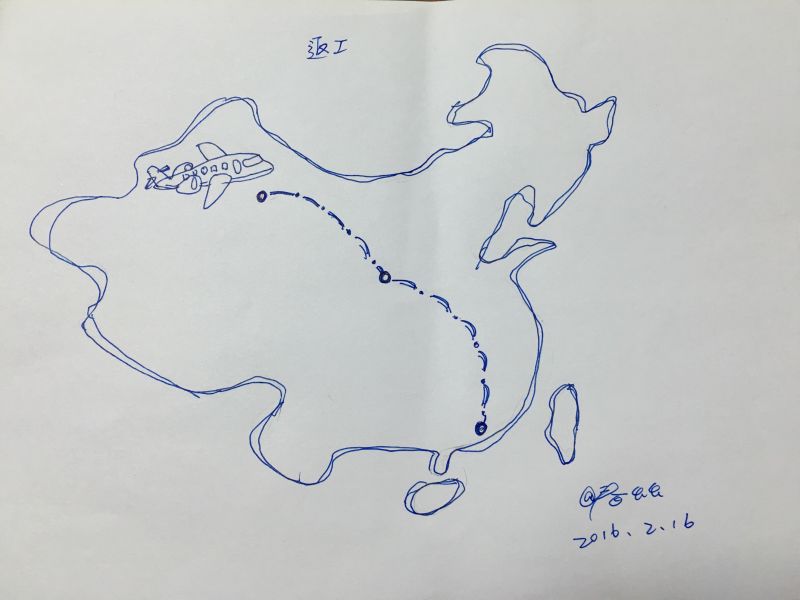 返工
2016.2.16